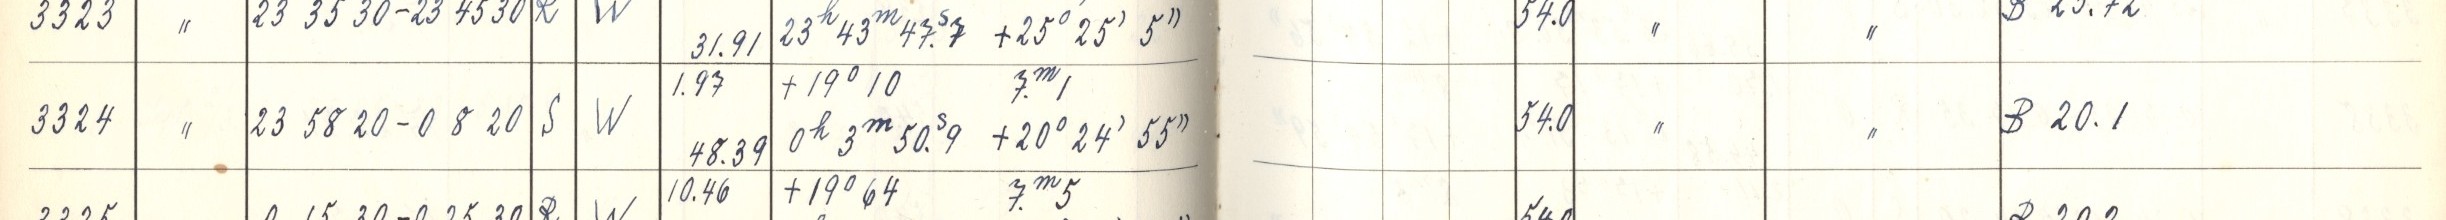 3323 " 23 35 30-23 45 30 R W 31.91 23h 43m 47.s7 +25° 25' 5" 54.0 " "
1.97 +19° 10 7.m1
3324 " 23 58 20-0 8 20 S W 48.39 0h 3m 50.s9 +20° 24' 55" 54.0 " " B 20.1
10.46 +19° 64 7.m5
3325 0 15 30-0 25 30 R W 54.0